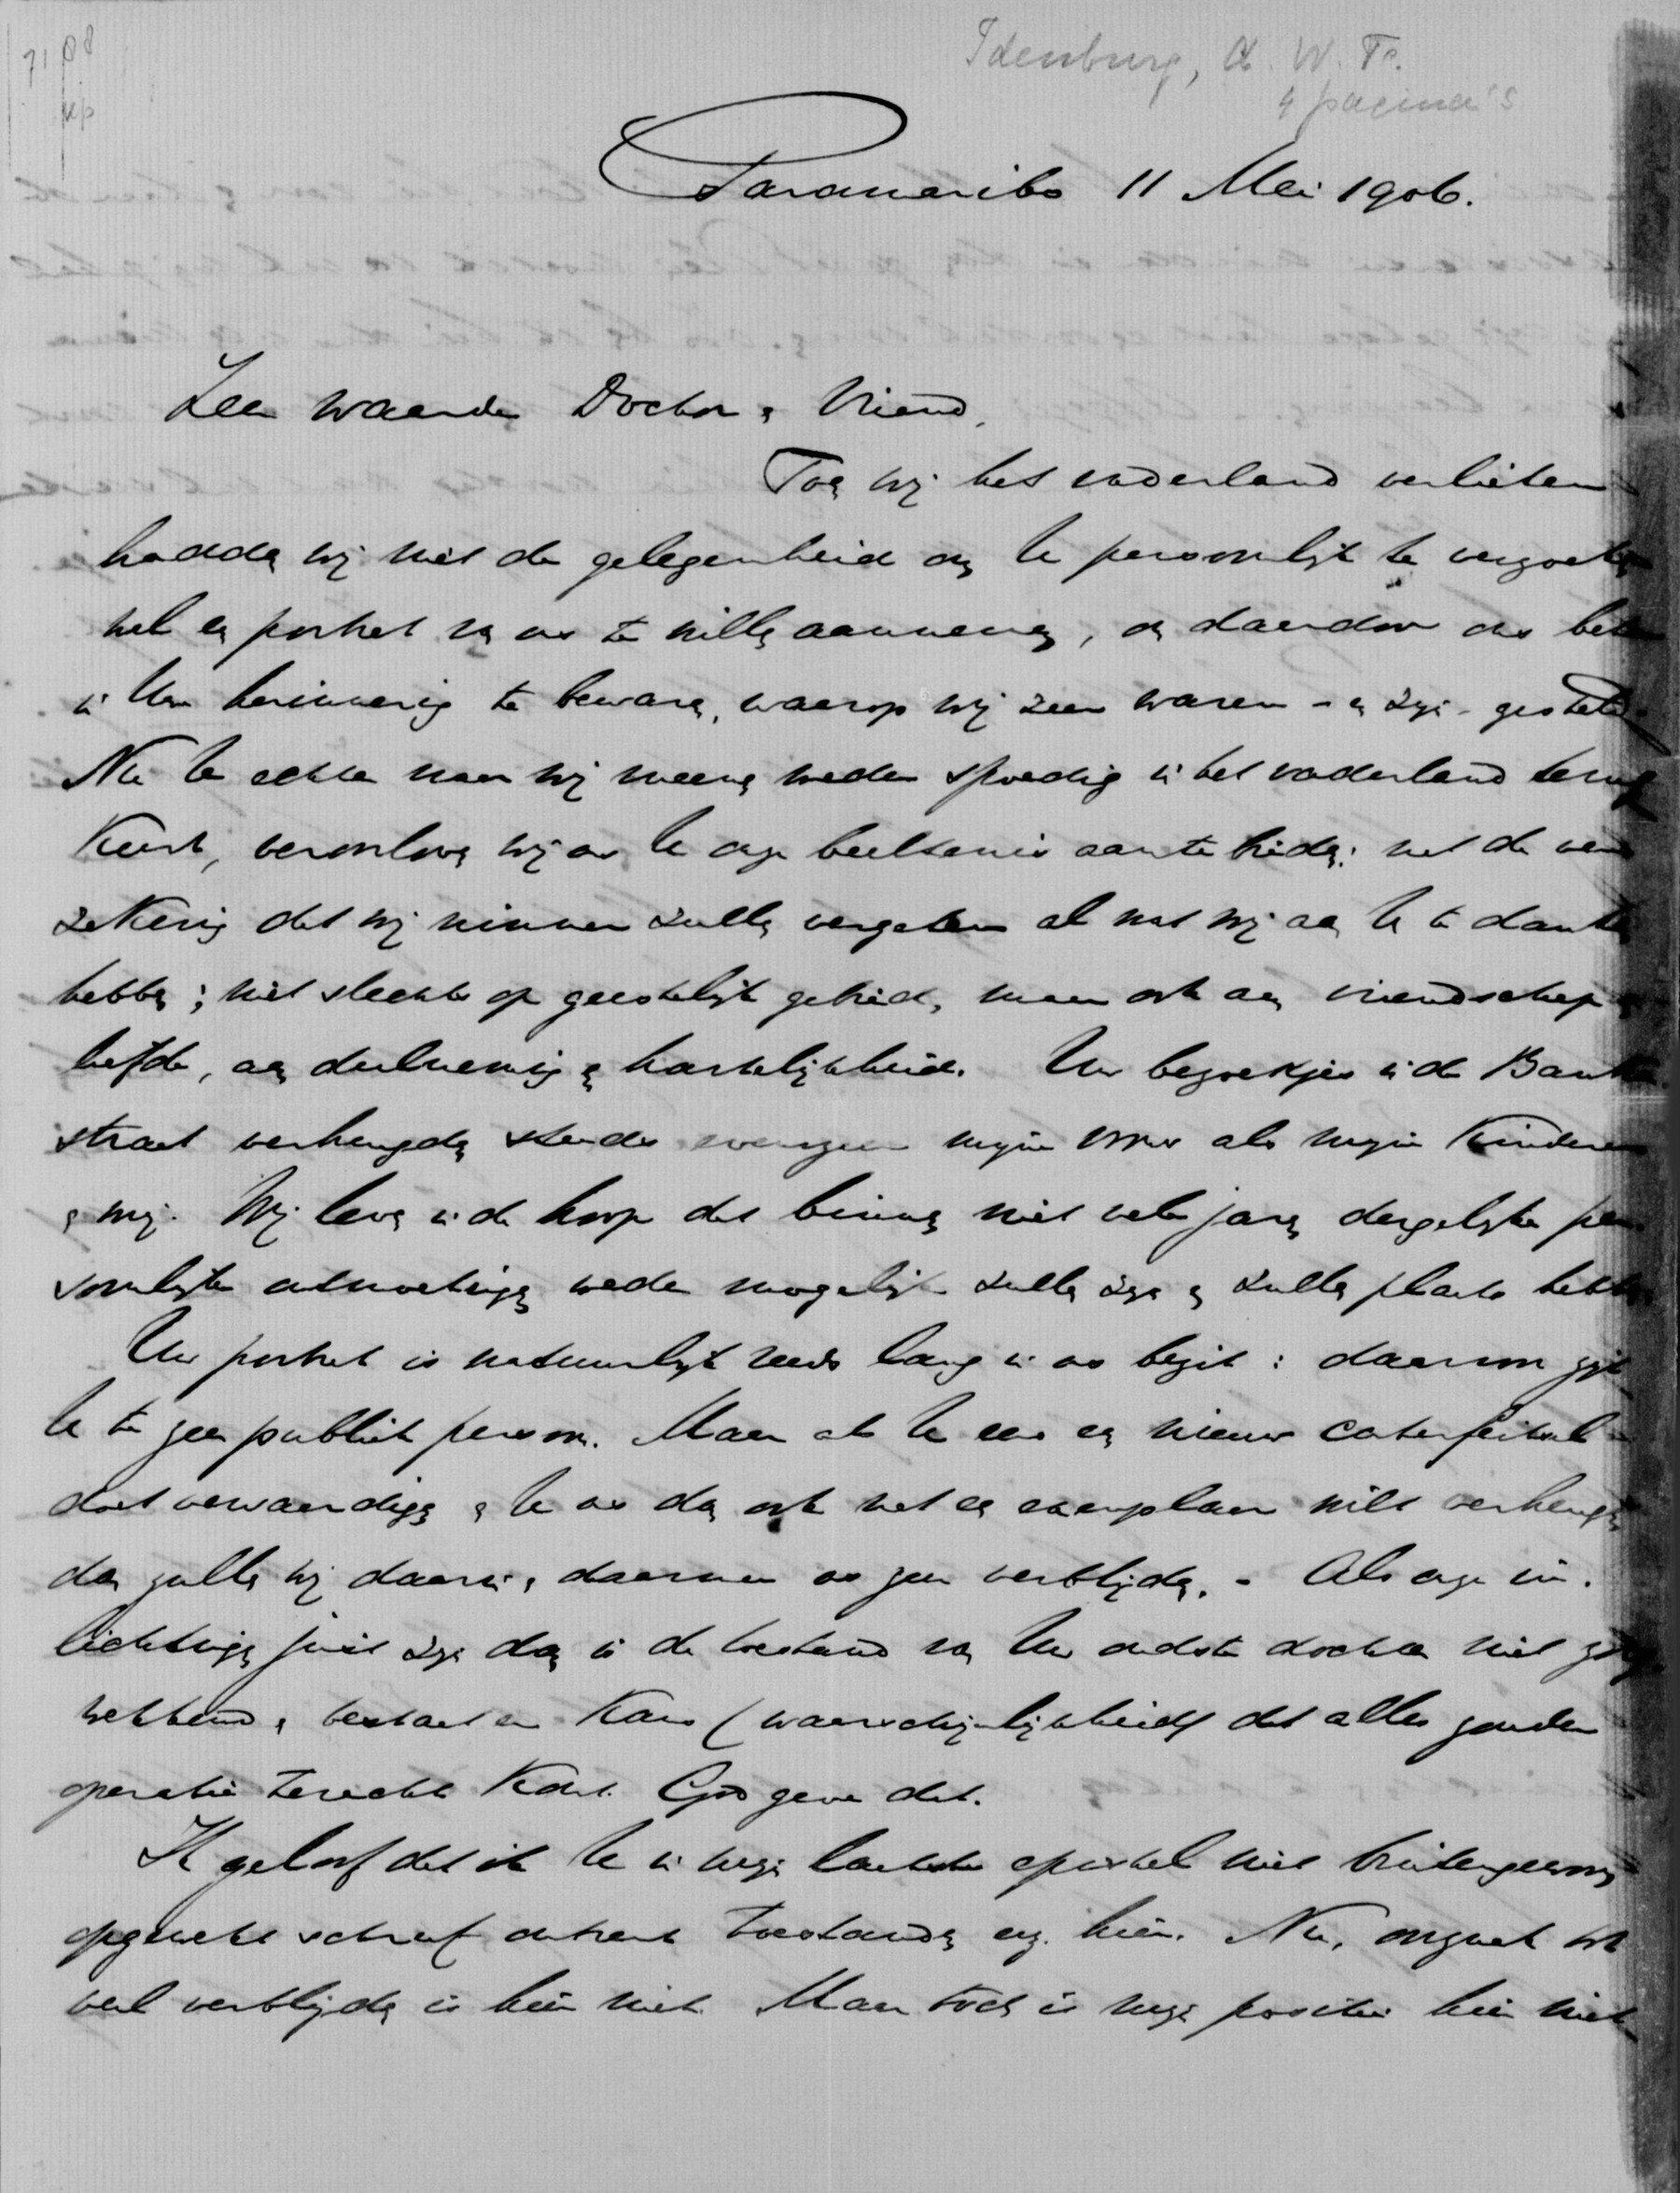 7108
kp
Idenburg, A. W. F.
4 pagina's
Paramaribo 11 Mei 1906.
Zeer waarde Doctor & Vriend,
Toen wij het vaderland verlieten
hadden wij niet de gelegenheid om U persoonlijk te verzoeken
wel een portret van ons te willen aannemen, en daardoor ons beter
in Uw herinnering te bewaren, waarop wij zeer waren - en zijn - gesteld.
Nu U echter naar wij meenen weder spoedig in het vaderland terug
keert, veroorloven wij ons U onze beeltenis aan te bieden: met de ver
zekering dat wij nimmer zullen vergeten al wat wij aan U te danken
hebben; niet slechts op geestelijk gebied, maar ook aan vriendschap &
liefde, aan deelneming & hartelijkheid. Uw bezoekjes in de Banka
straat verheugden steeds evenzeer mijne vrouw als mijne kinderen
& mij. Wij leven in de hoop dat binnen niet vele jaren dergelijke per
soonlijke ontmoetingen weder mogelijk zullen zijn & zullen plaats hebben
Uw portret is natuurlijk reeds lang in ons bezit: daarvoor zijt
U te zeer publiek persoon. Maar als U eens een nieuw conterfeitsel
doet vervaardigen & U ons dan ook met een exemplaar wilt verheugen
dan zullen wij daarin & daarover ons zeer verblijden. - Als onze in-
lichtingen juist zijn dan is de toestand van Uw oudste dochter niet zorg
wekkend & bestaat er kans (waarschijnlijkheid) dat alles zonder
operatie terecht komt. God geve dat.
Ik geloof dat ik U in mijn laatste epistel niet buitengewoon
opgewekt schreef omtrent toestanden enz. hier. Nu, ongeveer
veel verblijdends is hier niet. Maar toch is mijn positie hier niet